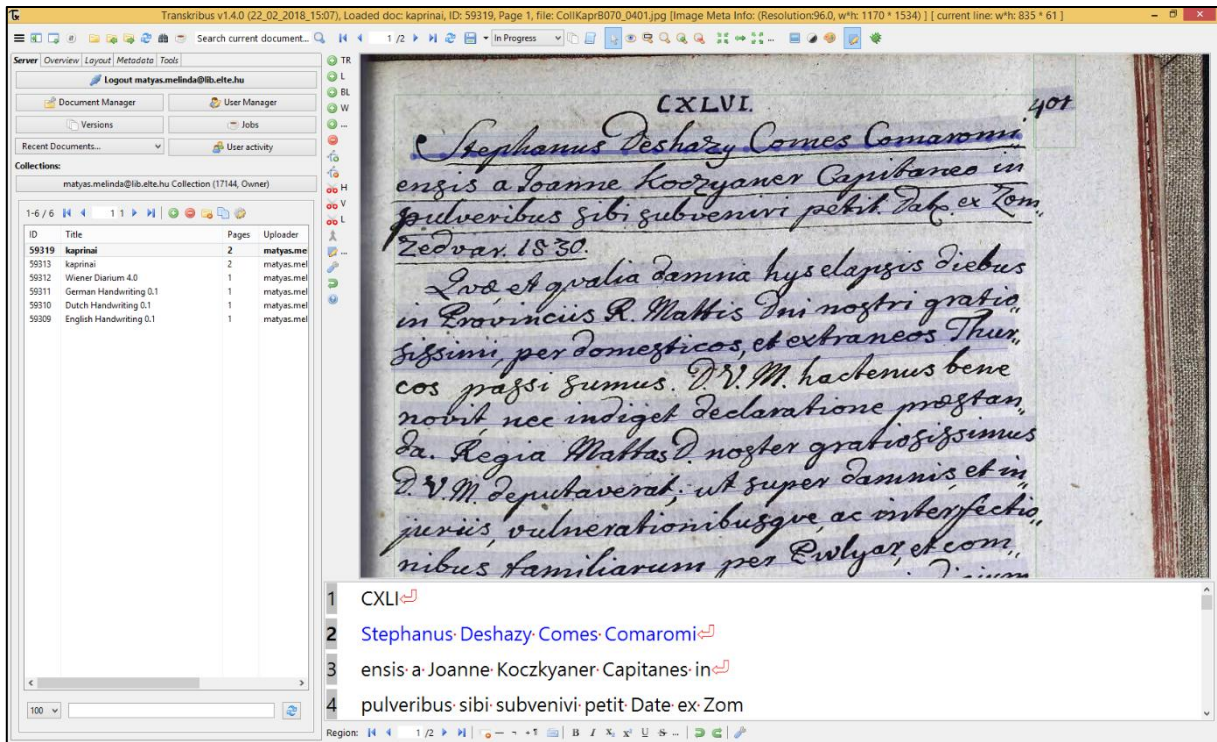 Transkribus v1.4.0 (22_02_2018_15:07), Loaded doc: kaprinai, ID: 59319, Page 1, file: CollKaprB070_0401.jpg [Image Meta Info: (Resolution:96.0, w*h: 1170 * 1534) ] [ current line: w*h: 835 * 61 ]
Search current document...
1 /2
In Progress
Server Overview Layout Metadata Tools
Logout matyas.melinda@lib.elte.hu
Document Manager User Manager
Versions Jobs
Recent Documents... User activity
Collections:
matyas.melinda@lib.elte.hu Collection (17144, Owner)
1-6 / 6 1 1
ID Title Pages Uploader
59319 kaprinai 2 matyas.me
59313 kaprinai 2 matyas.mel
59312 Wiener Diarium 4.0 1 matyas.mel
59311 German Handwriting 0.1 1 matyas.mel
59310 Dutch Handwriting 0.1 1 matyas.mel
59309 English Handwriting 0.1 1 matyas.mel
100
TR
L
BL
W
...
H
V
L
...
CXLVI. 401
Stephanus Deshazy Comes Comaromi„
ensis a Joanne Koczyaner Capitaneo in
pulveribus sibi subveniri petit. ex Zom„
Zedvar. 1530.
Qvæ et qvalia damna hys elapsis diebus
in Provinciis R. Mattis Dni nostri gratio„
sissimi, per domesticos, et extraneos Thur„
cos passi sumus. D.V.M. hactenus bene
novit, nec indiget declaratione præstan„
da. Regia Mattas D. noster gratiosissimus
D.V.M. deputaverat; ut super damnis, et in„
juriis, vulnerationibusqve, ac interfectio„
nibus familiarum per et com„
1 CXLI
2 Stephanus Deshazy Comes Comaromi
3 ensis a Joanne Koczkyaner Capitanes in
4 pulveribus sibi subvenivi petit Date ex Zom
Region: 1 /2 B I X₂ X² U S ...